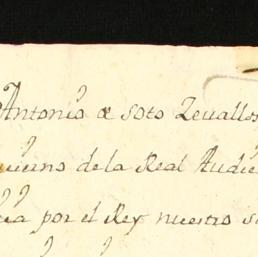 Antonio de soto Zeuallos
uierno de la Real Audie
por el Rey nuestro s